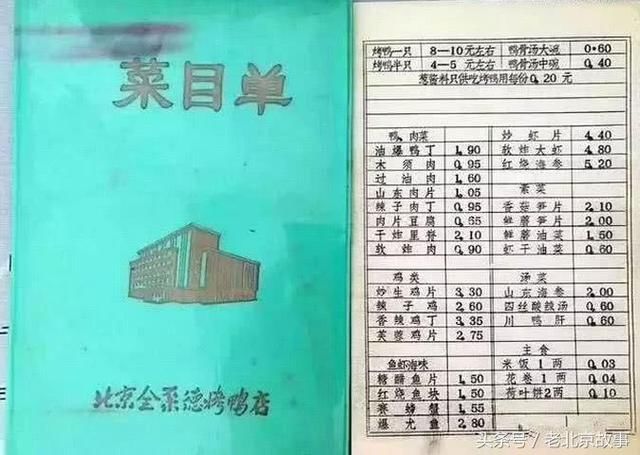 菜目单
北京全聚德烤鸭店
烤鸭一只 8—10元左右 鸭骨汤大碗 0.60
烤鸭半只 4—5元左右 鸭骨汤中碗 0.40
葱酱料只供吃烤鸭用每份0.20元
鸭、肉菜
油爆鸭丁 1.90
木须肉 0.95
过油肉 1.60
山东肉片 1.05
辣子肉丁 0.95
肉片豆腐 0.65
干炸里脊 2.10
软炸肉 0.90
鸡类
炒生鸡片 3.30
辣子鸡 2.60
香辣鸡丁 3.35
芙蓉鸡片 2.75
鱼虾海味
糖醋鱼片 1.50
红烧鱼块 1.50
赛螃蟹 1.55
爆尤鱼 2.80
炒虾片 4.40
软炸大虾 4.80
红烧海参 5.20
素菜
香菇笋片 2.10
鲜蘑笋片 2.00
鲜蘑油菜 1.50
虾干油菜 0.60
汤菜
山东海参 2.00
四丝酸辣汤 0.60
川鸭肝 0.60
主食
米饭1两 0.03
花卷1两 0.04
荷叶饼2两 0.10
头条号 / 老北京故事